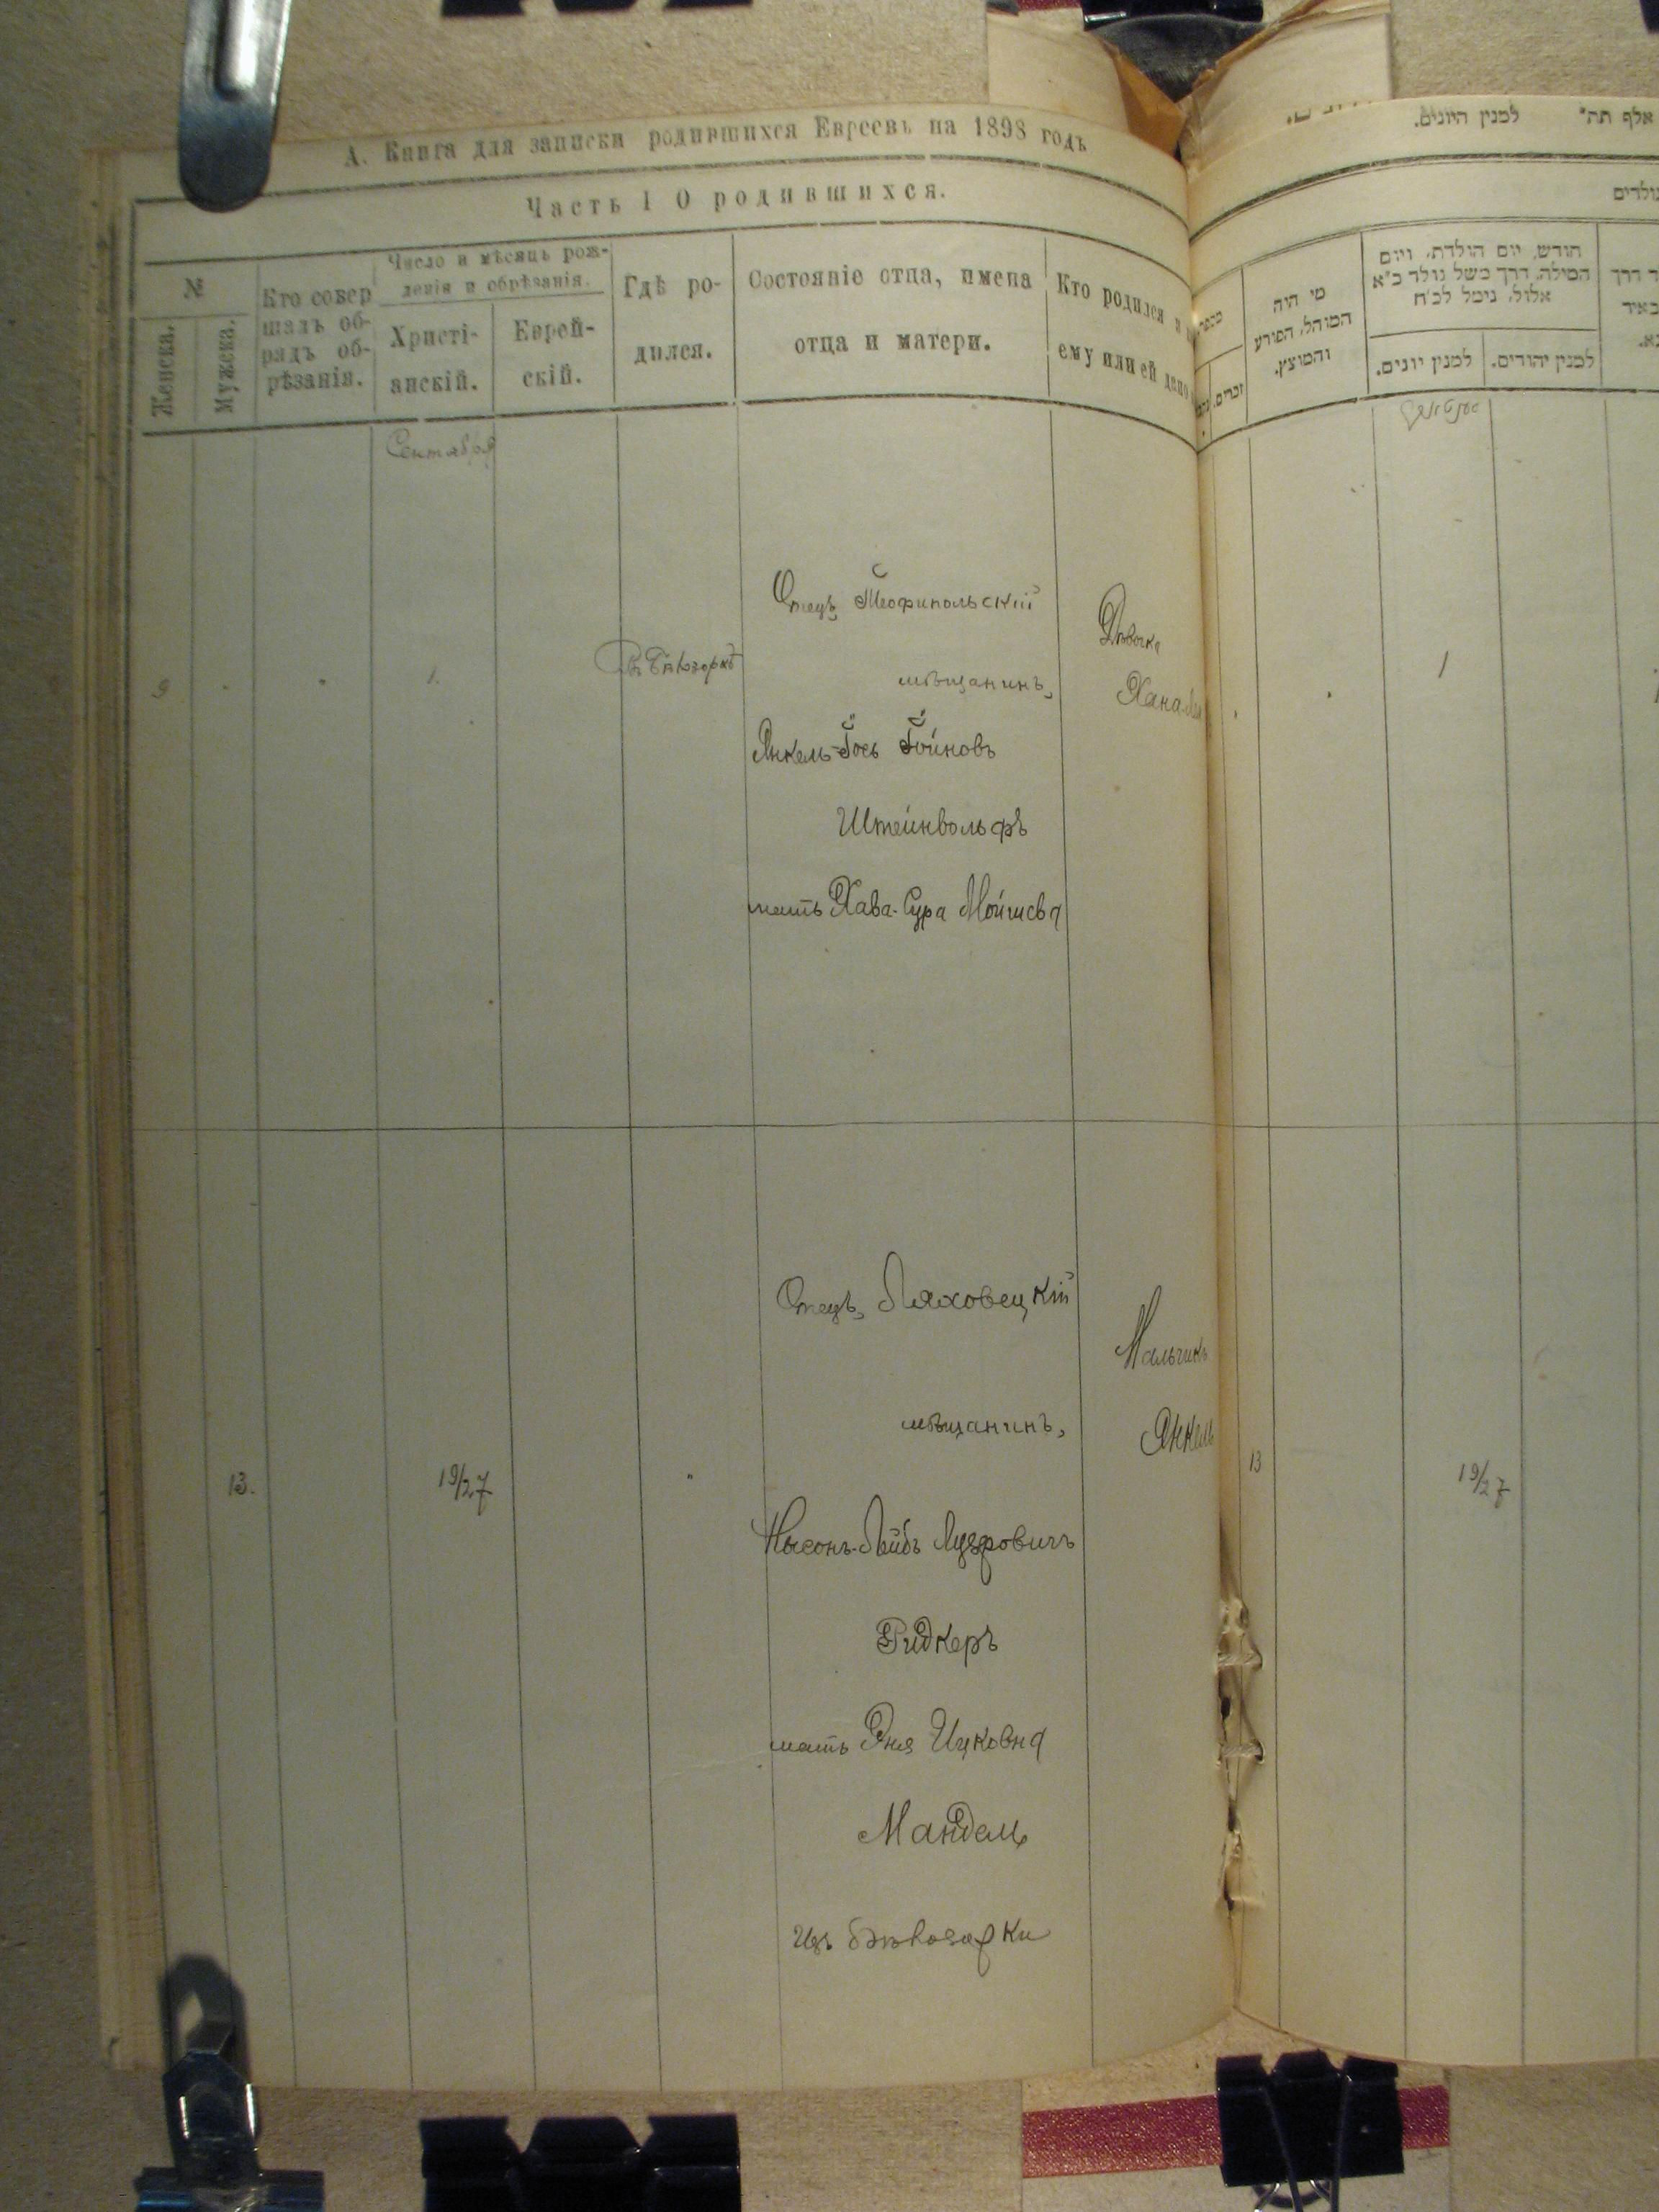 А. Книга для записки родившихся Евреевъ на 1898 годъ
Часть I О родившихся.
№
Женска.
Мужска.
Кто совер
шалъ об-
рядъ об-
рѣзанія.
Число и мѣсяцъ рож-
денія и обрѣзанія.
Христі-
анскій.
Еврей-
скій.
Гдѣ ро-
дился.
Состояніе отца, имена
отца и матери.
Кто родился и
ему или ей дано
Сентября
1.
Отецъ Теофипольскій
мѣщанинъ,
Янкель-Іось
Штейнвольфъ
мать Хава-Сура
Дѣвочка
Хана
13.
19/27
"
Отецъ, Ляховецкій
мѣщанинъ,
Нысонъ-Лейбъ
Ридкеръ
мать Ицковна
Мандель
изъ
Мальчикъ
Янкель
אלף תה"
למנין היונים.
נולדים
מי היה
המוהל, הפורע
והמוצץ.
חודש, יום הולדת, ויום
המילה, דרך משל נולד כ"א
אלול, נימל לכ"ח
למנין יהודים.
למנין יונים.
זכרים.
1
13
19/27